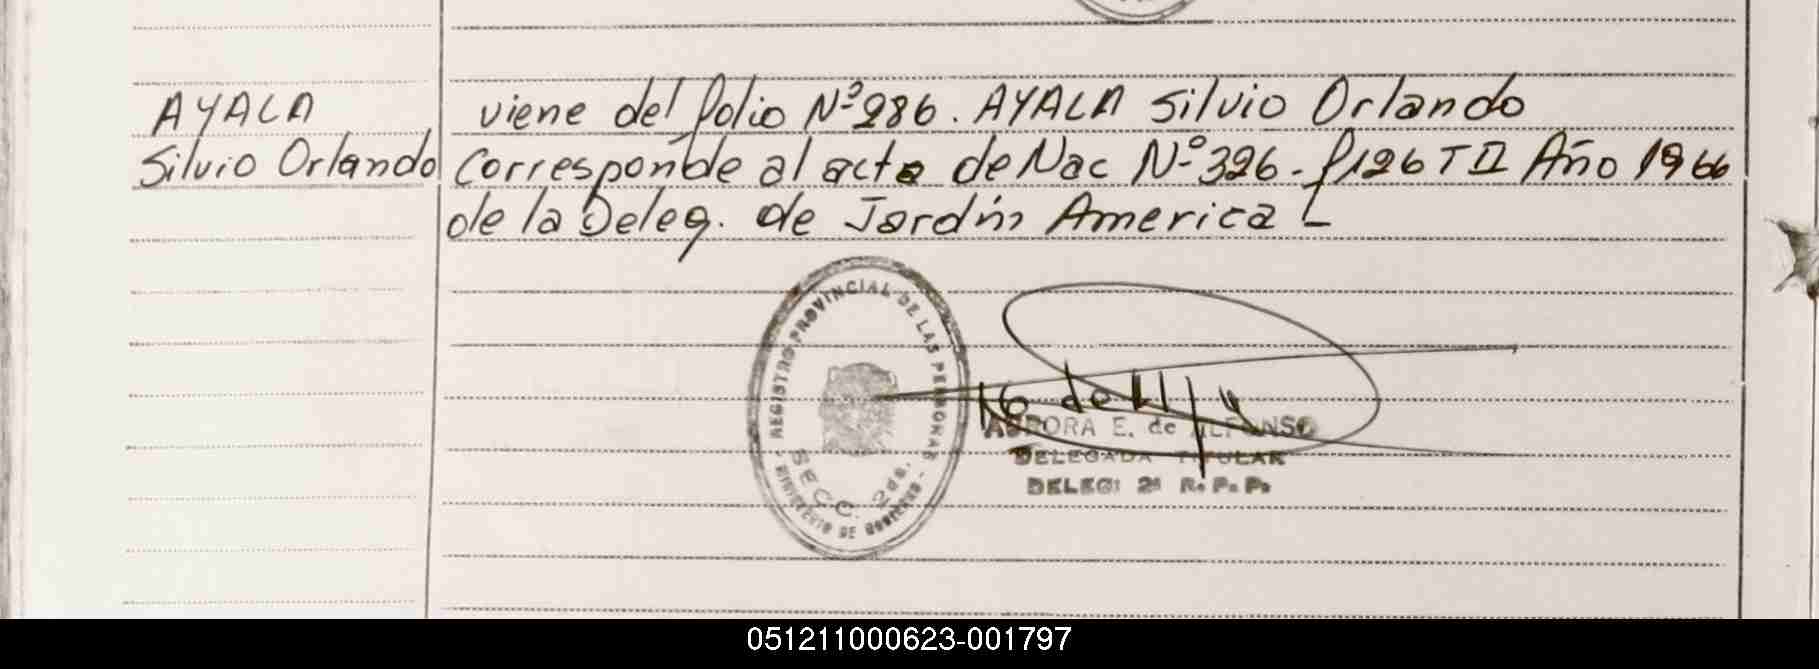 AYALA
Silvio Orlando
viene del folio Nº 286. AYALA Silvio Orlando
Corresponde al acta de Nac Nº 326. f 126 T II Año 1966
de la Deleg. de Jardín America
REGISTRO PROVINCIAL DE LAS PERSONAS
SECC. 2da.
MINISTERIO DE GOBIERNO
AURORA E. de ALFONSO
DELEGADA TITULAR
DELEG: 2ª R. P. P.
051211000623-001797